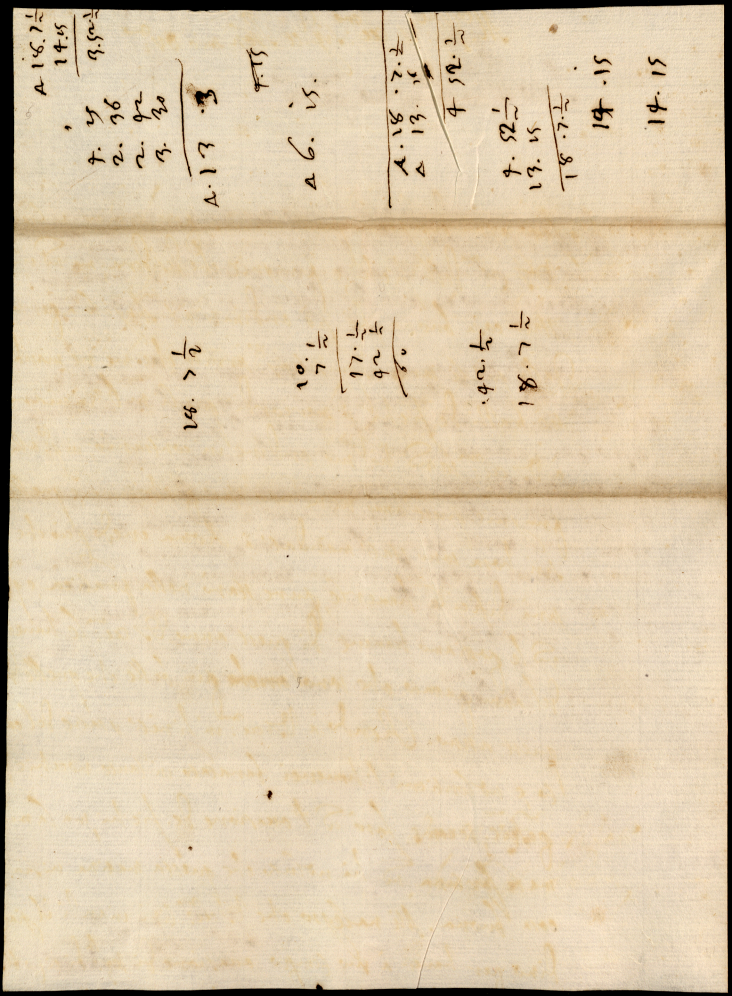 Δ 18. 7 1/2
14. 15
3. 52 1/2
4. 15
2. 36
2. 42
3. 30
Δ. 13 . 3
4. 15
Δ 6. 15.
Δ. 18 . 7. 1/2
Δ 13. 15
4 52. 1/2
4. 52 1/2
13. 15
18 . 7. 1/2
14 . 15
14. 15
18. 7 1/2
10.
7 1/2
17. 1/2
42 1/2
60
. 42. 1/2
18. 7 1/2